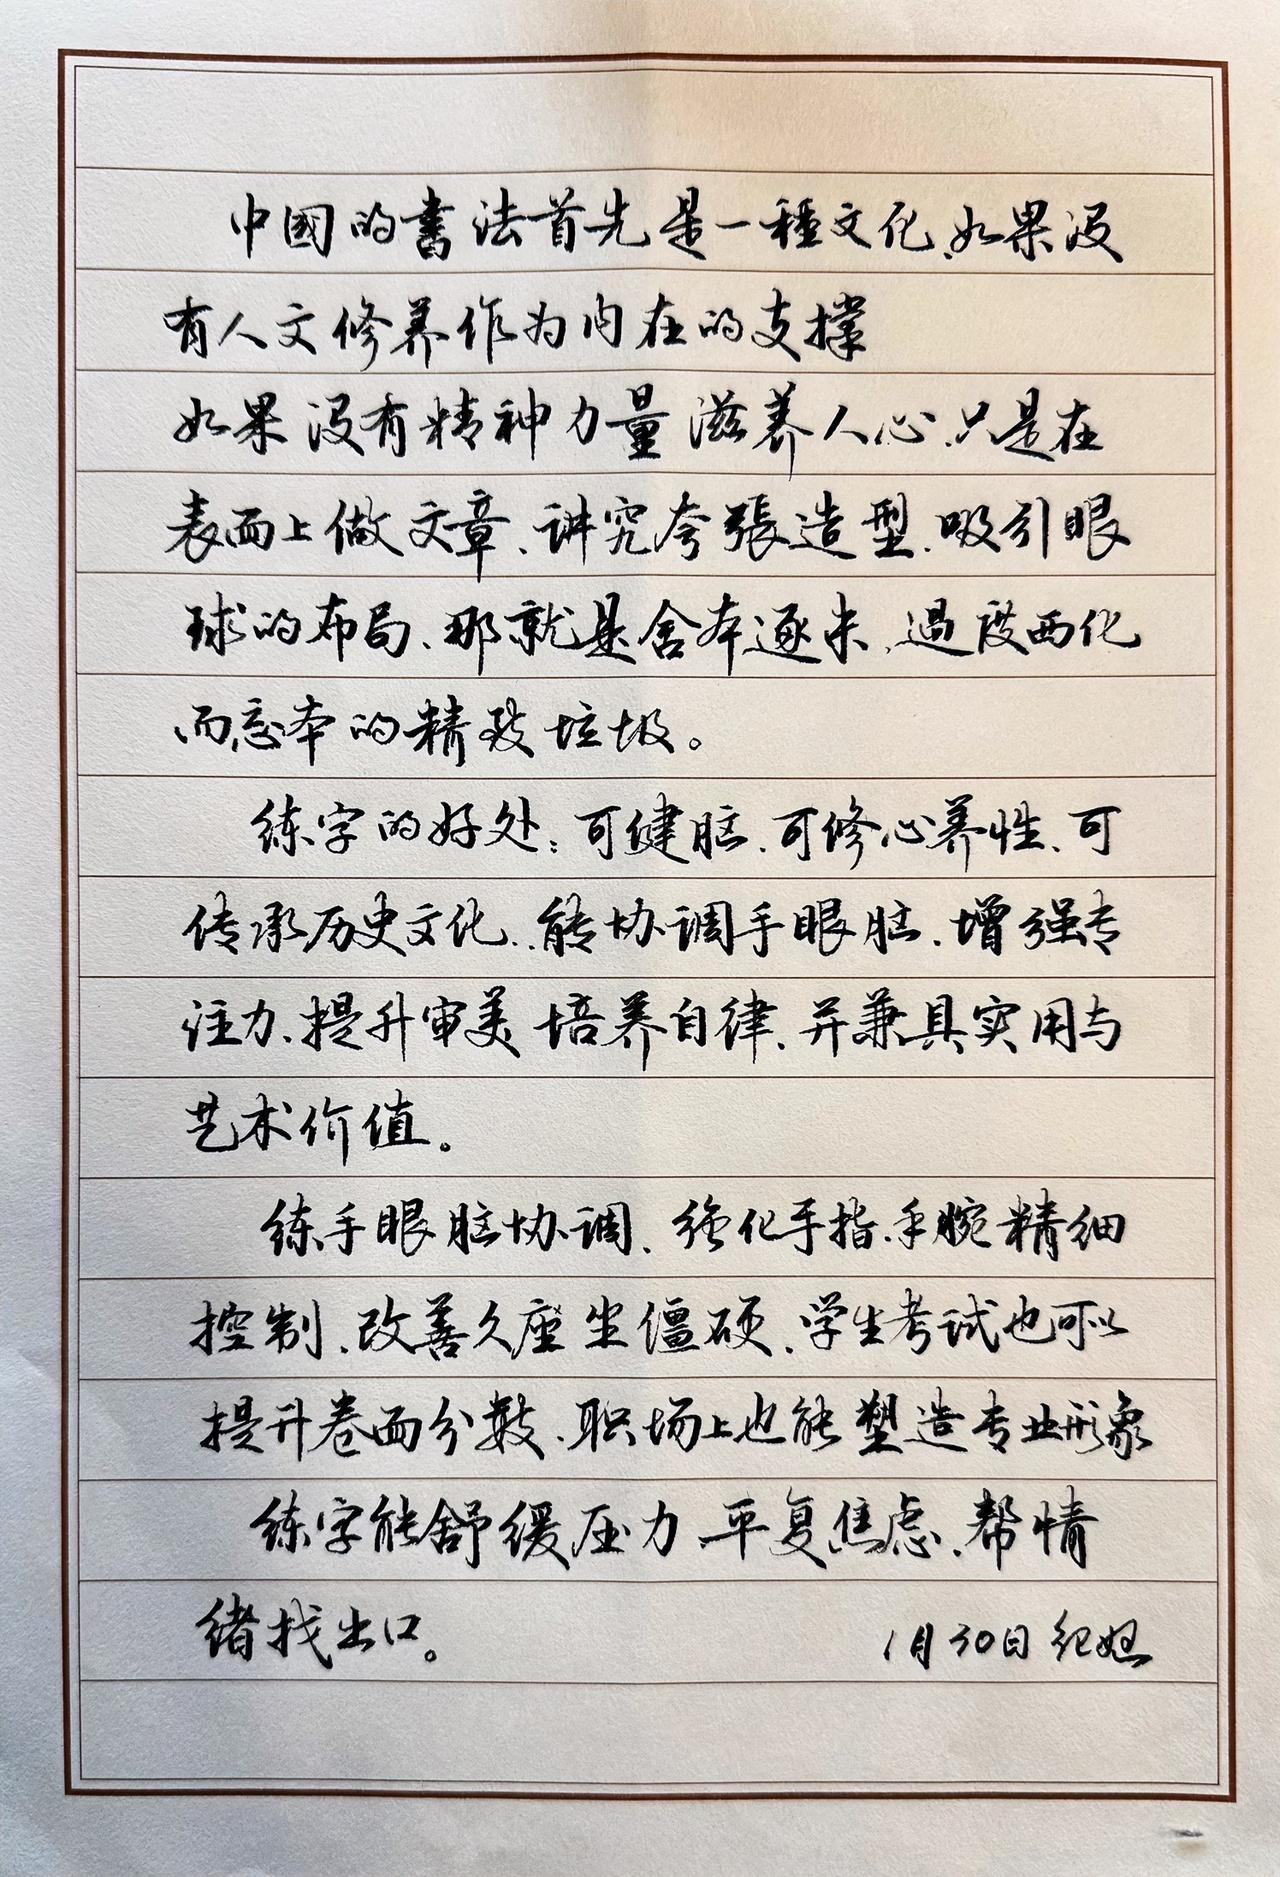 中國的書法首先是一種文化、如果没
有人文修养作为内在的支撑
如果没有精神力量滋养人心、只是在
表面上做文章、讲究夸張造型、吸引眼
球的布局、那就是舍本逐末、過度西化
而忘本的精致垃圾。
练字的好处：可健脑、可修心养性、可
传承历史文化、能协调手眼脑、增强专
注力、提升审美 培养自律、并兼具实用与
艺术价值。
练手眼脑协调、强化手指、手腕精细
控制、改善久座坐僵硬、学生考试也可以
提升卷面分数、职场上也能塑造专业形象
练字能舒缓压力、平复焦虑、帮情
绪找出口。
1月30日